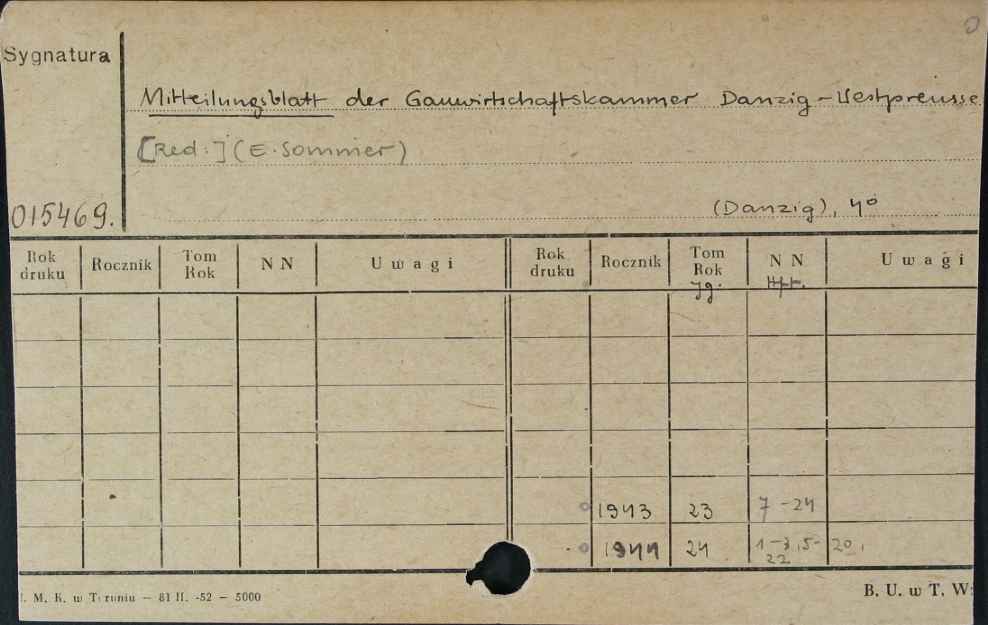 Sygnatura
Mitteilungsblatt der Gauwirtschaftskammer Danzig-Westpreusse
[Red.:] (E. Sommer)
(Danzig), 4°
015469.
Rok druku Rocznik Tom Rok NN Uwagi Rok druku Rocznik Tom Rok NN Uwagi
Jg. Hft.
1943 23 7-24
1944 24 1-3, 5-20,
22
. M. K. w Toruniu — 81 II. -52 — 5000
B. U. w T. W: